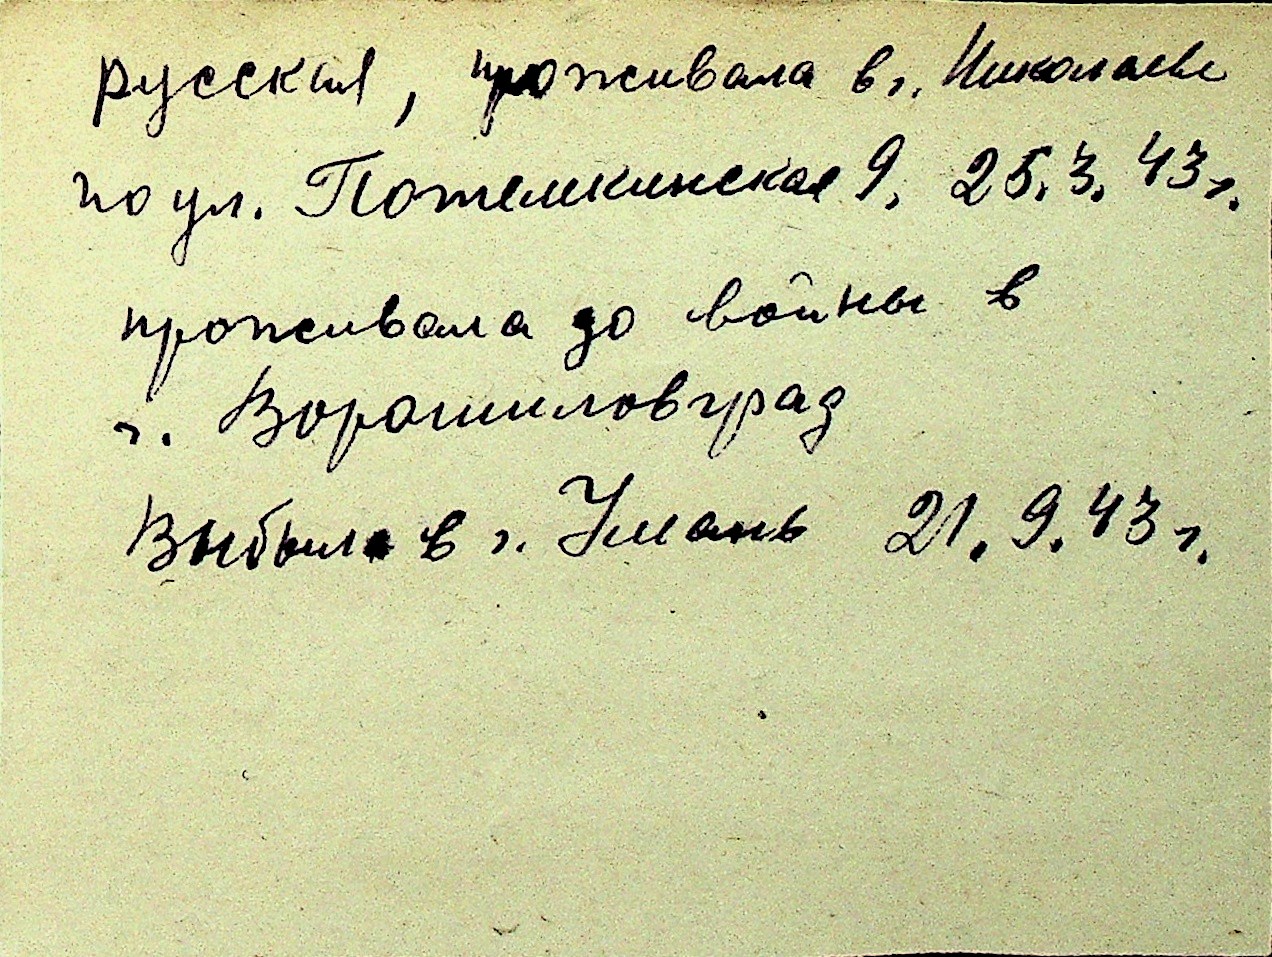 русская, проживала в г. Николаеве
по ул. Потемкинская 9. 25.3.43 г.
проживала до войны в
г. Ворошиловград
Выбыла в г. Умань 21.9.43 г.